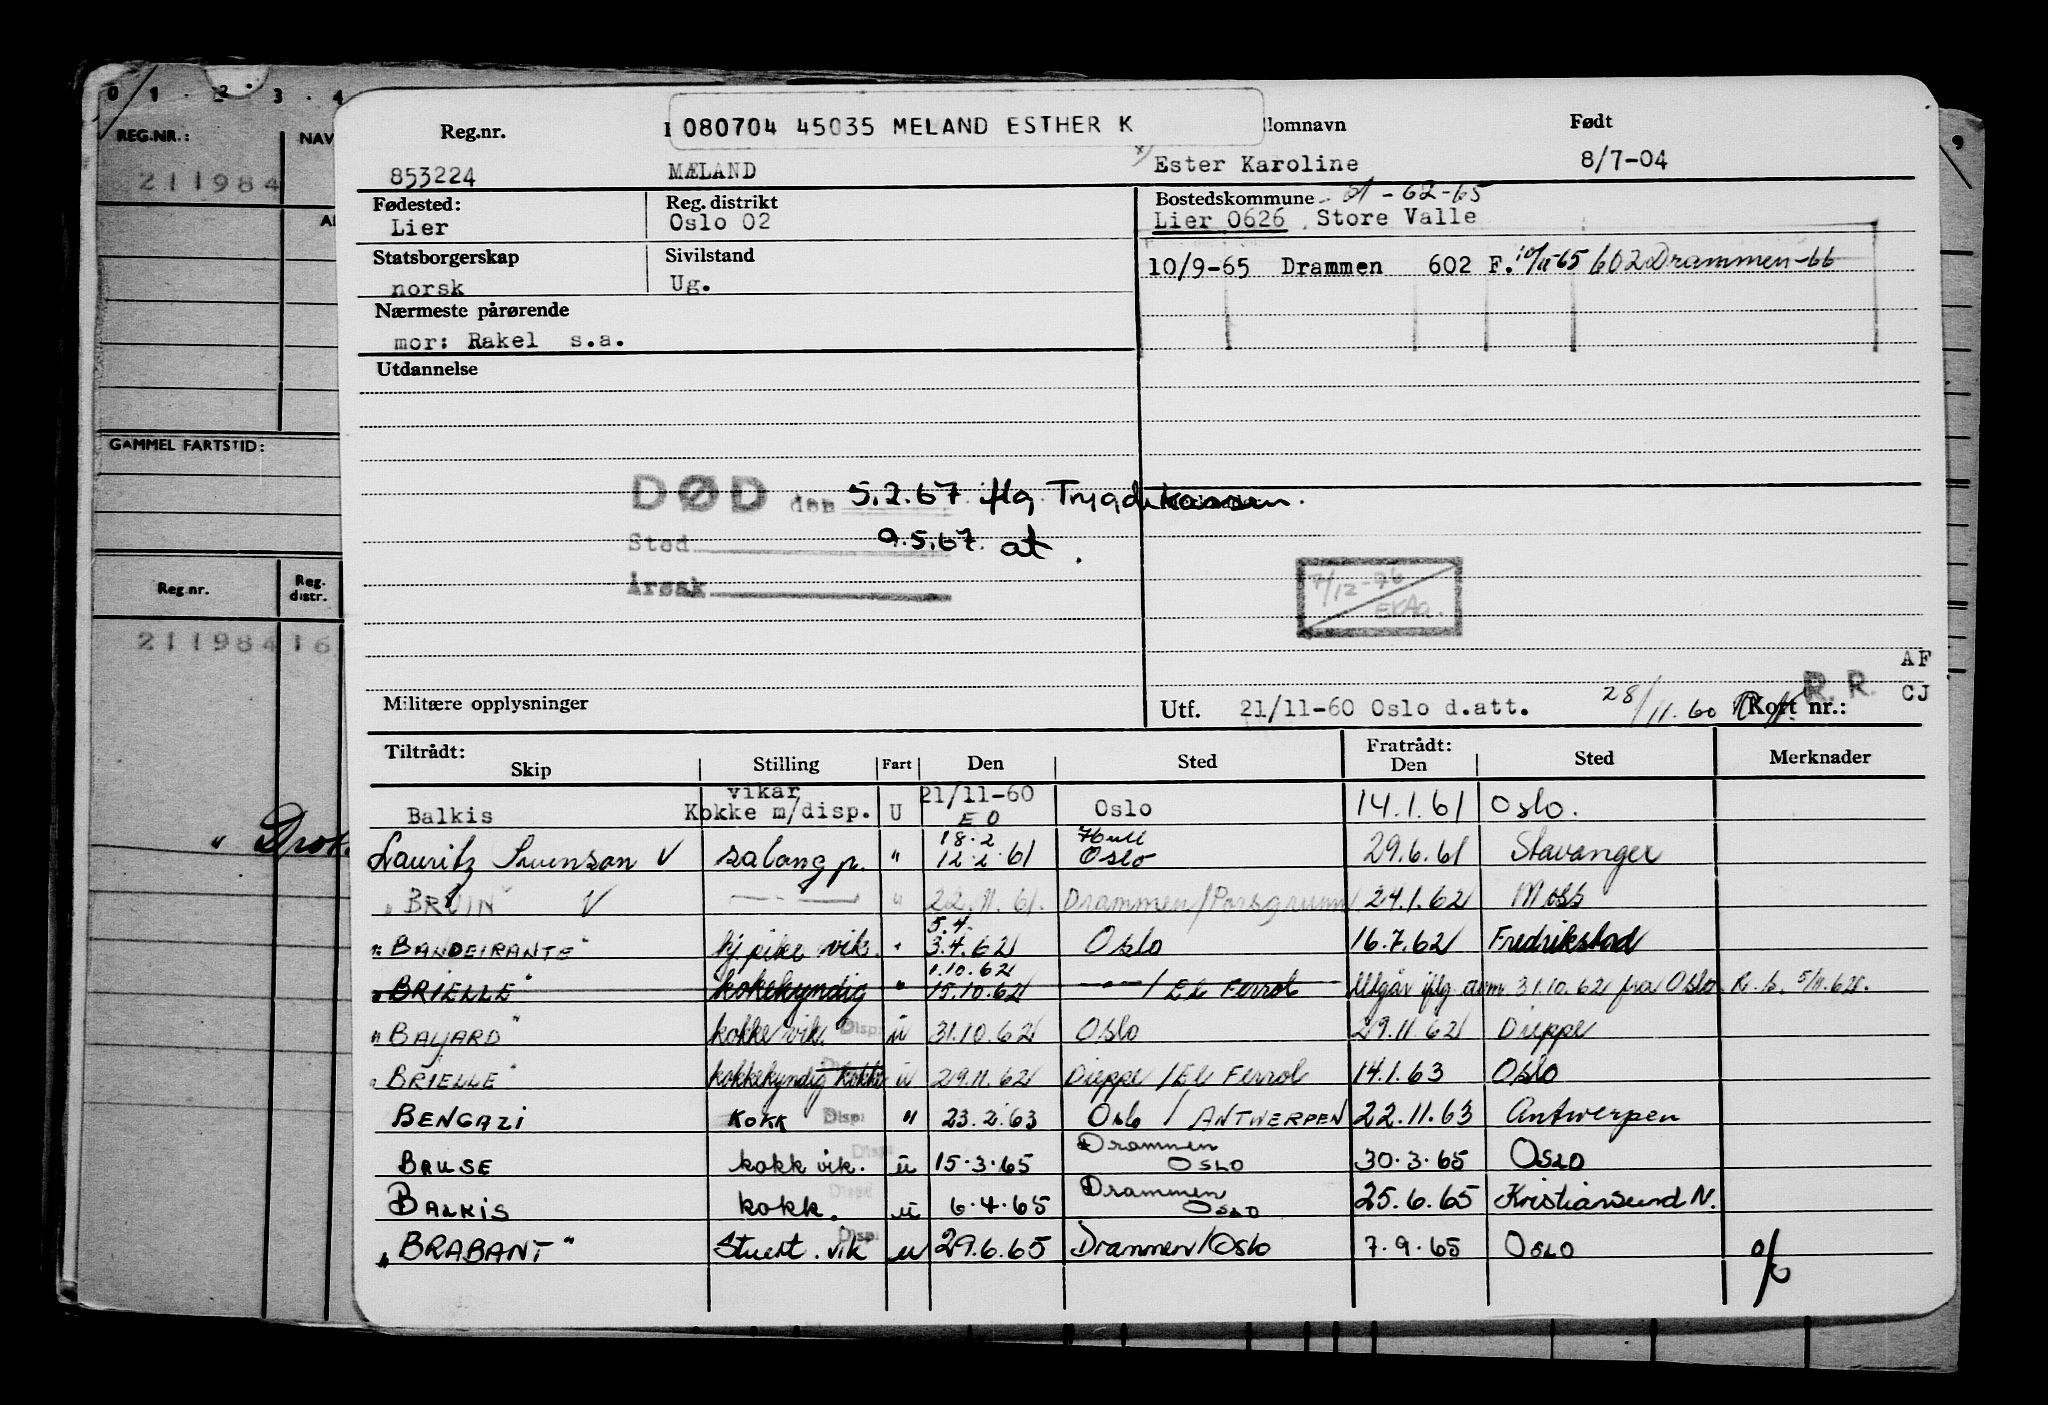 0 1 . 2 . 3 . 4
REG.NR.: NAV
211984
GAMMEL FARTSTID:
Reg.nr. Reg. distr.
211984 16
9
080704 45035 MELAND ESTHER K
Reg.nr. llomnavn Født
853224 MÆLAND x) Ester Karoline 8/7-04
Fødested: Reg. distrikt Bostedskommune 61-62-65
Lier Oslo 02 Lier 0626 Store Valle
Statsborgerskap Sivilstand
norsk Ug. 10/9-65 Drammen 602 F. 602 Drammen-66
Nærmeste pårørende
mor: Rakel s.a.
Utdannelse
DØD den 5.2.67 flg. Trygdekassen.
Sted 9.5.67. at.
Årsak
7/12-76
EKAa.
AF
Militære opplysninger Utf. 21/11-60 Oslo d.att. 28/11.60 Kort nr.: R. R. CJ
Tiltrådt: Fratrådt:
Skip Stilling Fart Den Sted Den Sted Merknader
Balkis vikar Kokke m/disp. U 21/11-60 E O Oslo 14.1.61 Oslo.
Lauritz Svenson V salong p. " 18.2 12.2.61 Hull Oslo 29.6.61 Stavanger
"BRUIN" V — " — " 22.11.61. Drammen/Porsgrunn 24.1.62 Moss
"BANDEIRANTE" kj pike vik. " 5.4. 3.4.62 Oslo 16.7.62 Fredrikstad
"BRIELLE" kokekyndig " 1.10.62 15.10.62 —"—/ El Ferrol Utgår iflg. dsm. 31.10.62 fra Oslo R. b. 5/11.62.
"BAJARD" kokke vik. Disp: u 31.10.62 Oslo 29.11.62 Dieppe
"BRIELLE" kokkekyndig kokke u 29.11.62 Dieppe / El Ferrol 14.1.63 Oslo
BENGAZI KOKK Disp: " 23.2.63 Oslo / ANTWERPEN 22.11.63 Antwerpen
BRUSE kokk vik. Disp: u 15.3.65 Drammen OSLO 30.3.65 OSLO
BALKIS kokk. u 6.4.65 Drammen OSLO 25.6.65 Kristiansund N.
"BRABANT" Stuert. vik Disp: u 29.6.65 Drammen/Oslo 7.9.65 OSLO